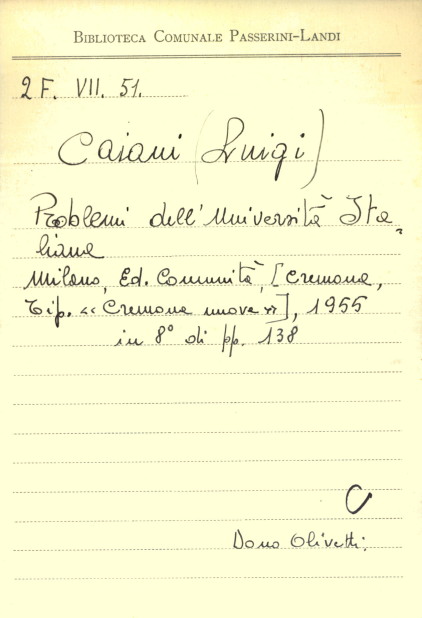 BIBLIOTECA COMUNALE PASSERINI-LANDI
2 F. VII. 51.
Caiani (Luigi)
Problemi dell'Università Ita-
liana
Milano, Ed. Comunità, [Cremona,
Tip. « Cremona nuova »], 1955
in 8° di pp. 138
C
Dono Olivetti.